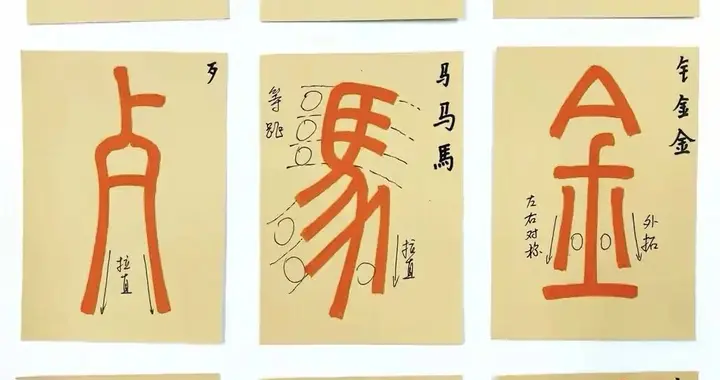 歹
拉直
马马馬
等距
馬
拉直
钅金金
金
左右对称
外拓